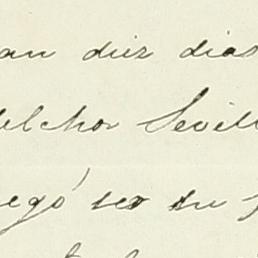 an diez dias
elchor Sevill
egó ser su